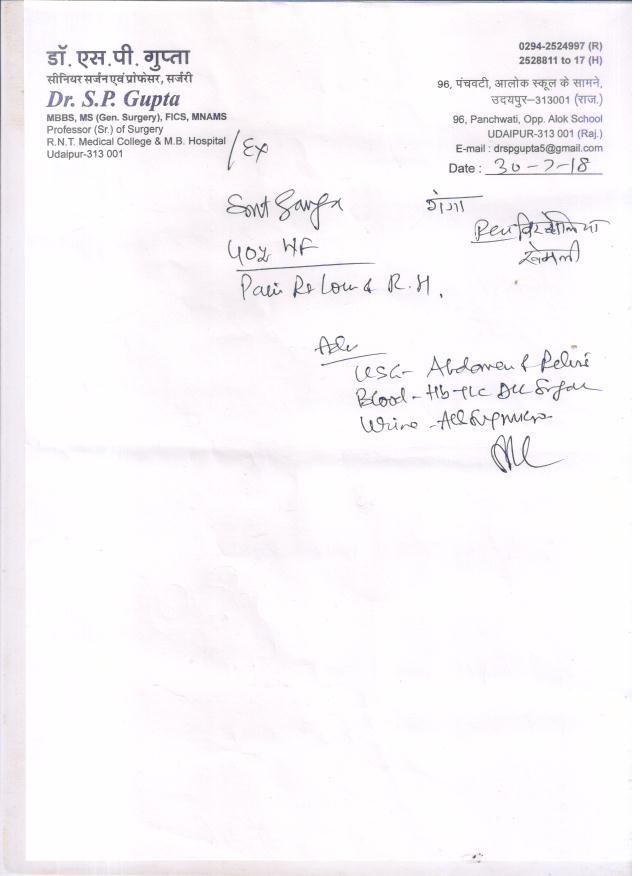 डॉ. एस.पी. गुप्ता
सीनियर सर्जन एवं प्रोफेसर, सर्जरी
Dr. S.P. Gupta
MBBS, MS (Gen. Surgery), FICS, MNAMS
Professor (Sr.) of Surgery
R.N.T. Medical College & M.B. Hospital
Udaipur-313 001
0294-2524997 (R)
2528811 to 17 (H)
96, पंचवटी, आलोक स्कूल के सामने,
उदयपुर–313001 (राज.)
96, Panchwati, Opp. Alok School
UDAIPUR-313 001 (Raj.)
E-mail : drspgupta5@gmail.com
Date : 30-7-18
/Ex
Smt Ganga
गंगा
40y HF
खेमली
Pain Rt Loin & R.H.
Adv
USG- Abdomen & Pelvis
Blood - Hb TLC DLC Sugar
Urine - Alb Sug micro